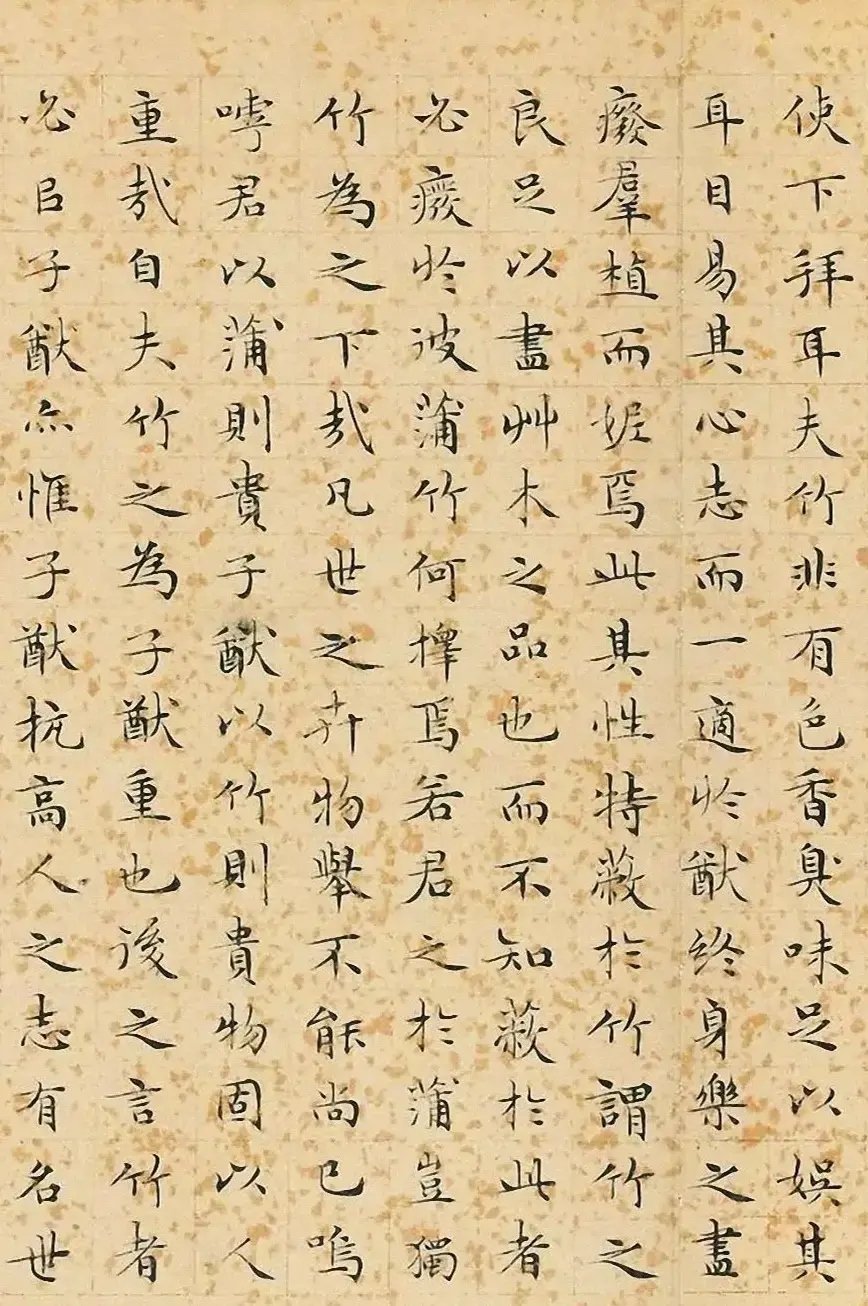 使下拜耳夫竹非有色香臭味足以娛其
耳目易其心志而一適於猷終身樂之盡
癈羣植而妮焉此其性特蔽於竹謂竹之
良足以盡艸木之品也而不知蔽於此者
必癈於彼蒲竹何擇焉若君之於蒲豈獨
竹為之下哉凡世之卉物舉不能尚已嗚
嘑君以蒲則貴子猷以竹則貴物固以人
重哉自夫竹之為子猷重也後之言竹者
必㠯子猷亦惟子猷抗高人之志有名世